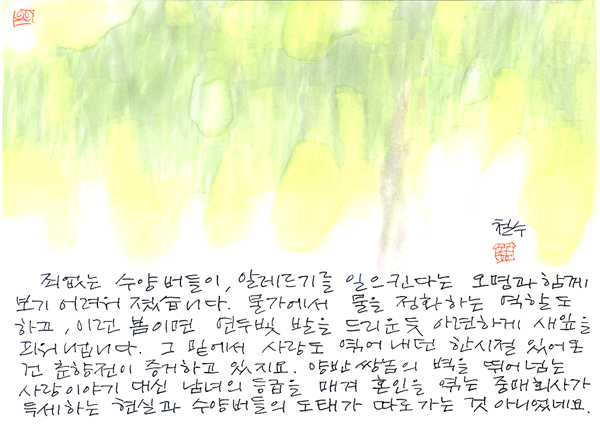 철수
죄없는 수양버들이, 알레르기를 일으킨다는 오명과 함께
보기 어려워 졌습니다. 물가에서 물을 정화하는 역할도
하고, 이런 봄이면 연두빛 발을 드리운듯 아련하게 새잎을
피워냅니다. 그 밑에서 사랑도 엮어내던 한시절 있어온
건 춘향전이 증거하고 있지요. 양반쌍놈의 벽을 뛰어넘는
사랑이야기 대신 남녀의 등급을 매겨 혼인을 엮는 중매회사가
득세하는 현실과 수양버들의 도태가 따로가는 것 아니었네요.